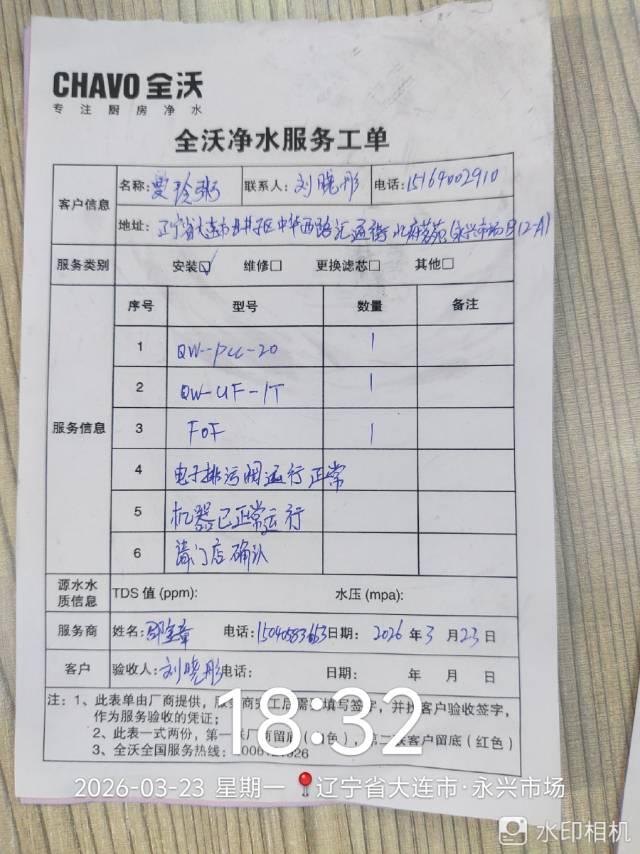 CHAVO 全沃
专注厨房净水
全沃净水服务工单
客户信息 名称: 曼玲粥 联系人: 刘晓彤 电话: 15164002910
地址: 辽宁省大连市甘井子区中华西路汇通街 (永兴市场B12-A)
服务类别 安装☑ 维修□ 更换滤芯□ 其他□
服务信息
序号 型号 数量 备注
1 QW-PCC-20 1
2 QW-UF-1T 1
3 FOF 1
4 电子排污阀运行正常
5 机器已正常运行
6 请门店确认
源水水质信息 TDS 值 (ppm): 水压 (mpa):
服务商 姓名: 电话: 日期: 2026 年 3 月 23 日
客户 验收人: 刘晓彤 电话: 日期: 年 月 日
注: 1、此表单由厂商提供, 服务商完工后需填写签字, 并找客户验收签字,
作为服务验收的凭证;
2、此表一式两份, 第一联厂商留底 (白色), 第二联客户留底 (红色)
3、全沃全国服务热线:
18:32
2026-03-23 星期一 📍辽宁省大连市·永兴市场
水印相机